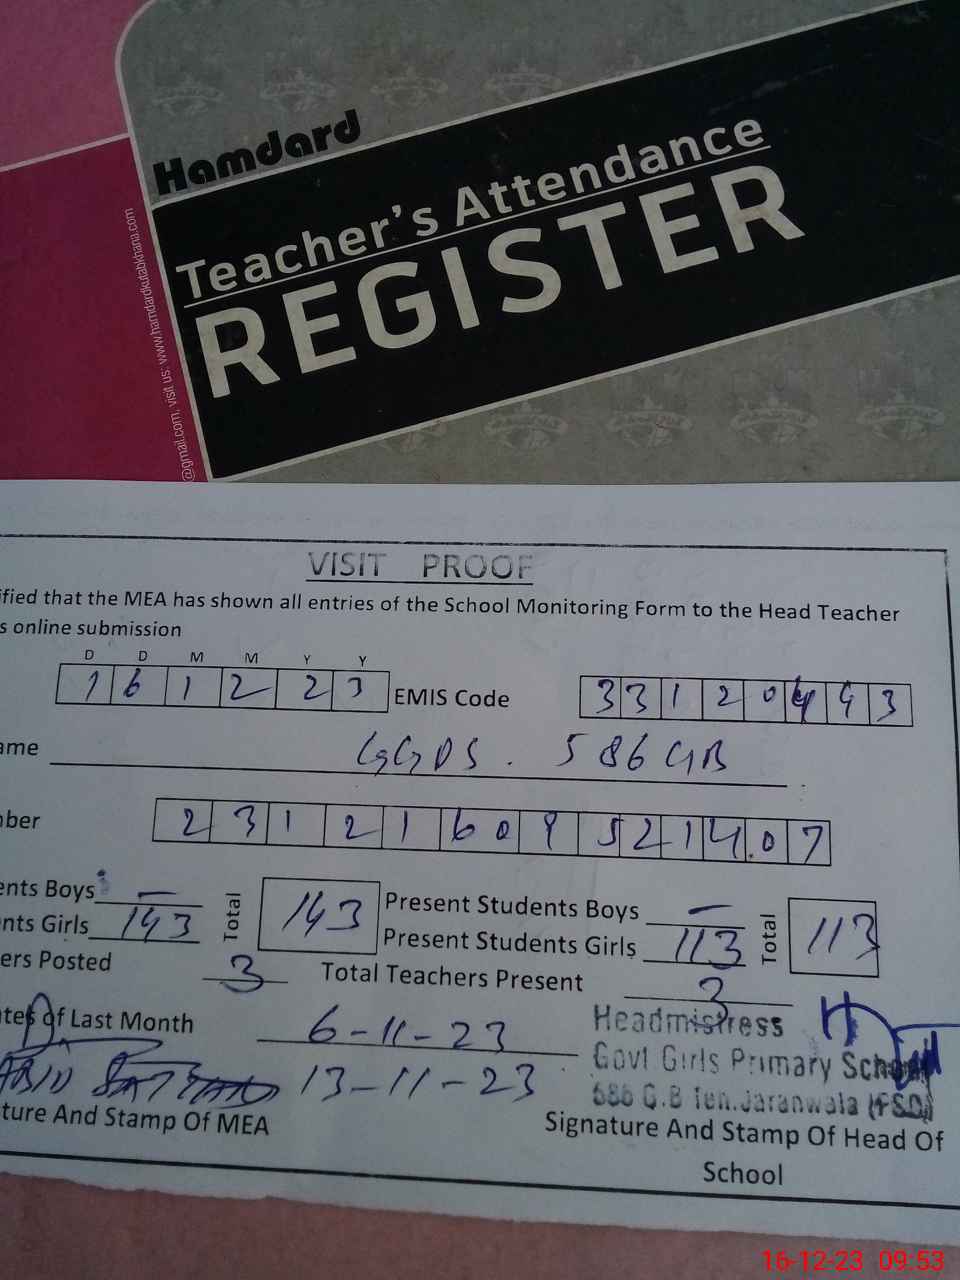 Hamdard
Teacher's Attendance
REGISTER
@gmail.com, visit us: www.hamdardkutabkhana.com
VISIT PROOF
ified that the MEA has shown all entries of the School Monitoring Form to the Head Teacher
s online submission
D D M M Y Y
1 6 1 2 2 3 EMIS Code 3 3 1 2 0 4 4 3
ame GGPS. 586 GB
ber 2 3 1 2 1 6 0 9 5 2 1 4 0 7
ents Boys - Total 143 Present Students Boys - Total 113
nts Girls 143 Present Students Girls 113
ers Posted 3 Total Teachers Present 3
ates of Last Month 6-11-23 Headmistress
13-11-23 Govt Girls Primary School
586 G.B Teh.Jaranwala (FSD)
ture And Stamp Of MEA Signature And Stamp Of Head Of
School
16-12-23 09:53